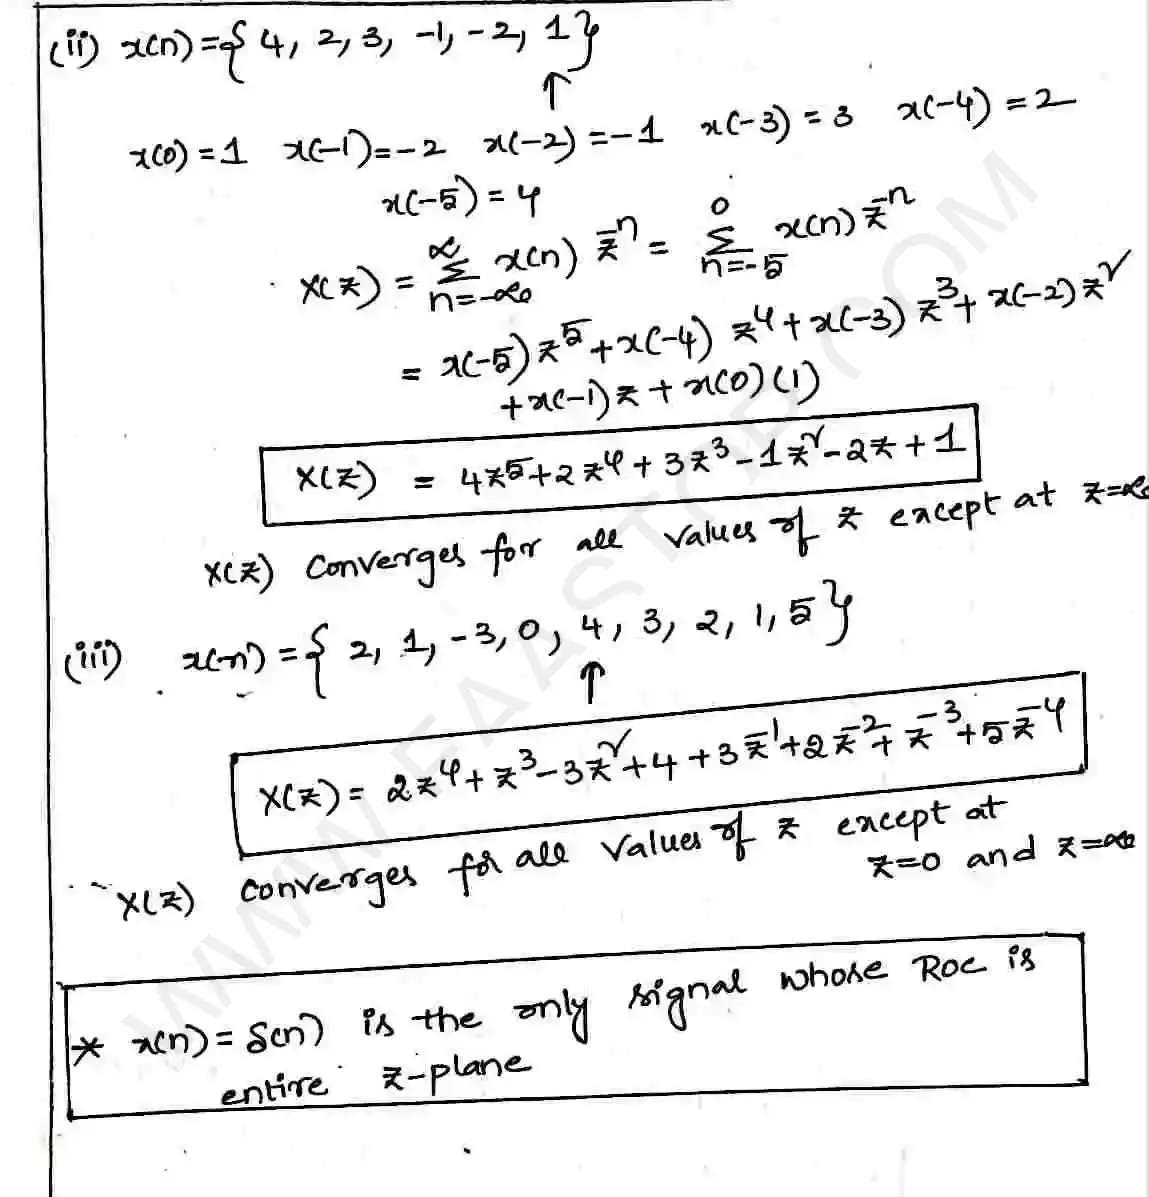 (ii) x(n)={4, 2, 3, -1, -2, 1}
↑
x(0)=1 x(-1)=-2 x(-2)=-1 x(-3)=3 x(-4)=2
x(-5)=4
X(z) = ∑_{n=-∞}^{∞} x(n) z^{-n} = ∑_{n=-5}^{0} x(n) z^{-n}
= x(-5) z^5 + x(-4) z^4 + x(-3) z^3 + x(-2) z^2
+ x(-1) z + x(0) (1)
X(z) = 4z^5 + 2z^4 + 3z^3 - 1z^2 - 2z + 1
X(z) converges for all values of z except at z=∞
(iii) x(n) = {2, 1, -3, 0, 4, 3, 2, 1, 5}
↑
X(z) = 2z^4 + z^3 - 3z^2 + 4 + 3z^{-1} + 2z^{-2} + z^{-3} + 5z^{-4}
X(z) converges for all values of z except at
z=0 and z=∞
* x(n) = δ(n) is the only signal whose ROC is
entire z-plane